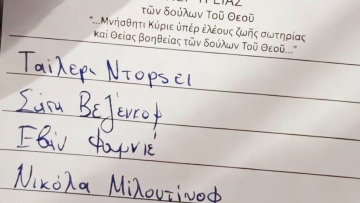 τῶν δούλων Τοῦ Θεοῦ
"...Μνήσθητι Κύριε ὑπέρ ἐλέους ζωῆς σωτηρίας
καί Θείας βοηθείας τῶν δούλων Τοῦ Θεοῦ..."
Ταϊλερ Ντορσεϊ
Σάσα Βεζένκοφ
Εβάν Φουρνιέ
Νικόλα Μιλουτίνοφ